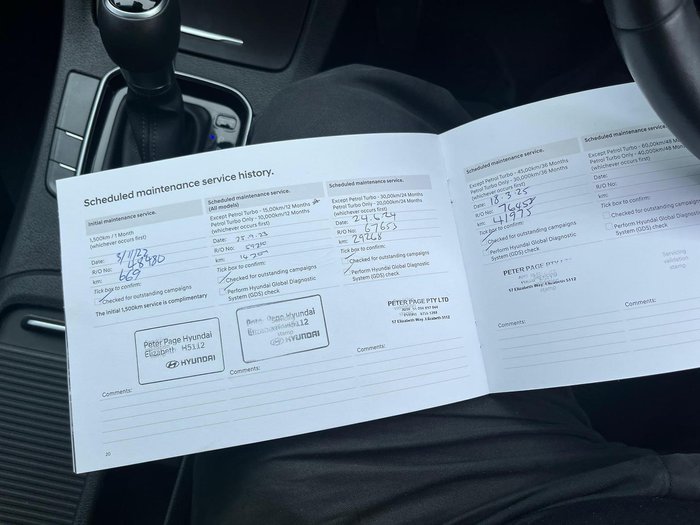 Scheduled maintenance service history.
Initial maintenance service.
1,500km / 1 Month
(whichever occurs first)
Date:
R/O No:
km: 669
Tick box to confirm:
Checked for outstanding campaigns
The initial 1,500km service is complimentary
Peter Page Hyundai
Elizabeth H5112
HYUNDAI
Comments:
20
Scheduled maintenance service.
(All models)
Except Petrol Turbo - 15,000km/12 Months
Petrol Turbo Only - 10,000km/12 Months
(whichever occurs first)
Date:
R/O No:
km:
Tick box to confirm:
Checked for outstanding campaigns
Perform Hyundai Global Diagnostic
System (GDS) check
Peter Page Hyundai
HYUNDAI
Comments:
Scheduled maintenance service.
Except Petrol Turbo - 30,000km/24 Months
Petrol Turbo Only - 20,000km/24 Months
(whichever occurs first)
Date: 24.6.24
R/O No: 67653
km: 29268
Tick box to confirm:
Checked for outstanding campaigns
Perform Hyundai Global Diagnostic
System (GDS) check
PETER PAGE PTY LTD
57 Elizabeth Way, Elizabeth 5112
Comments:
Scheduled maintenance service.
Except Petrol Turbo - 45,000km/36 Months
Petrol Turbo Only - 30,000km/36 Months
(whichever occurs first)
Date: 18.3.25
R/O No: 76455
km: 41975
Tick box to confirm:
Checked for outstanding campaigns
Perform Hyundai Global Diagnostic
System (GDS) check
PETER PAGE
57 Elizabeth Way, Elizabeth 5112
Comments:
Scheduled maintenance service.
Except Petrol Turbo - 60,000km/48
Petrol Turbo Only - 40,000km/48 Mon
(whichever occurs first)
Date:
R/O No:
km:
Tick box to confirm:
Checked for outstanding campaigns
Perform Hyundai Global Diagnostic
System (GDS) check
Servicing
validation
stamp
Comments: